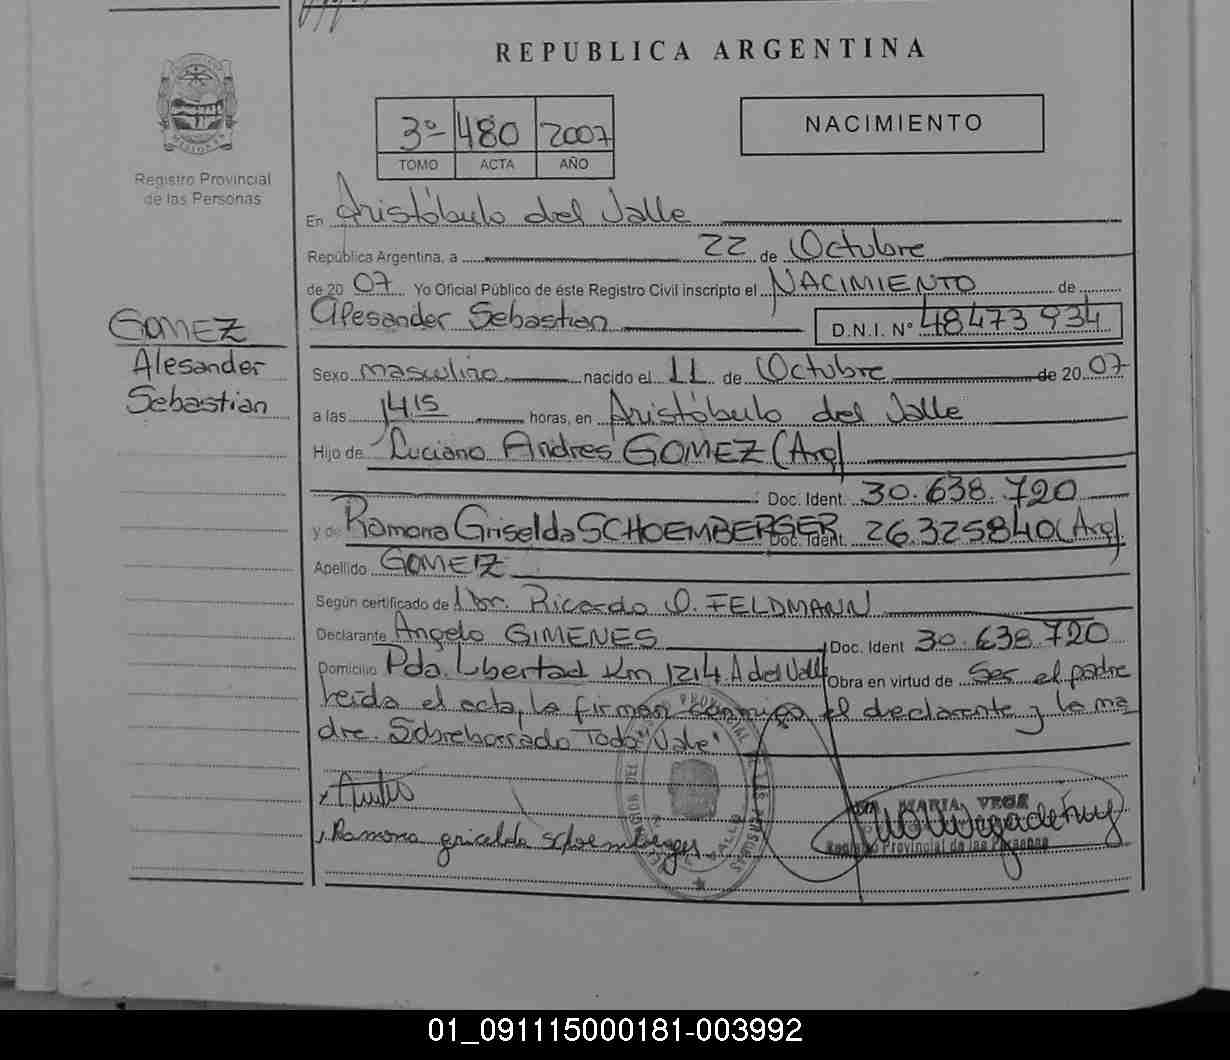 REPUBLICA ARGENTINA
3º 480 2007
TOMO ACTA AÑO
NACIMIENTO
Registro Provincial
de las Personas
GOMEZ
Alesander
Sebastian
En Aristóbulo del Valle
República Argentina, a 22 de Octubre
de 20 07 Yo Oficial Público de éste Registro Civil inscripto el NACIMIENTO de
Alesander Sebastian D.N.I. Nº 48473934
Sexo masculino nacido el 11 de Octubre de 20 07
a las 1415 horas, en Aristóbulo del Valle
Hijo de Luciano Andres GOMEZ (Arg)
Doc. Ident. 30.638.720
y de Ramona Griselda SCHOEMBERGER Doc. Ident. 26.325840 (Arg)
Apellido GOMEZ
Según certificado de Dr. Ricardo O. FELDMANN
Declarante Angelo GIMENES Doc. Ident 30.638.720
Domicilio Pda. Libertad Km 1214 A del Valle Obra en virtud de Ser el padre
Leída el acta, la firman conmigo el declarante y la ma
dre. Sobreborrado Todo "Vale"
Ramona gricelda schoemberger
MARIA VEGA
Registro Provincial de las Personas
01_091115000181-003992